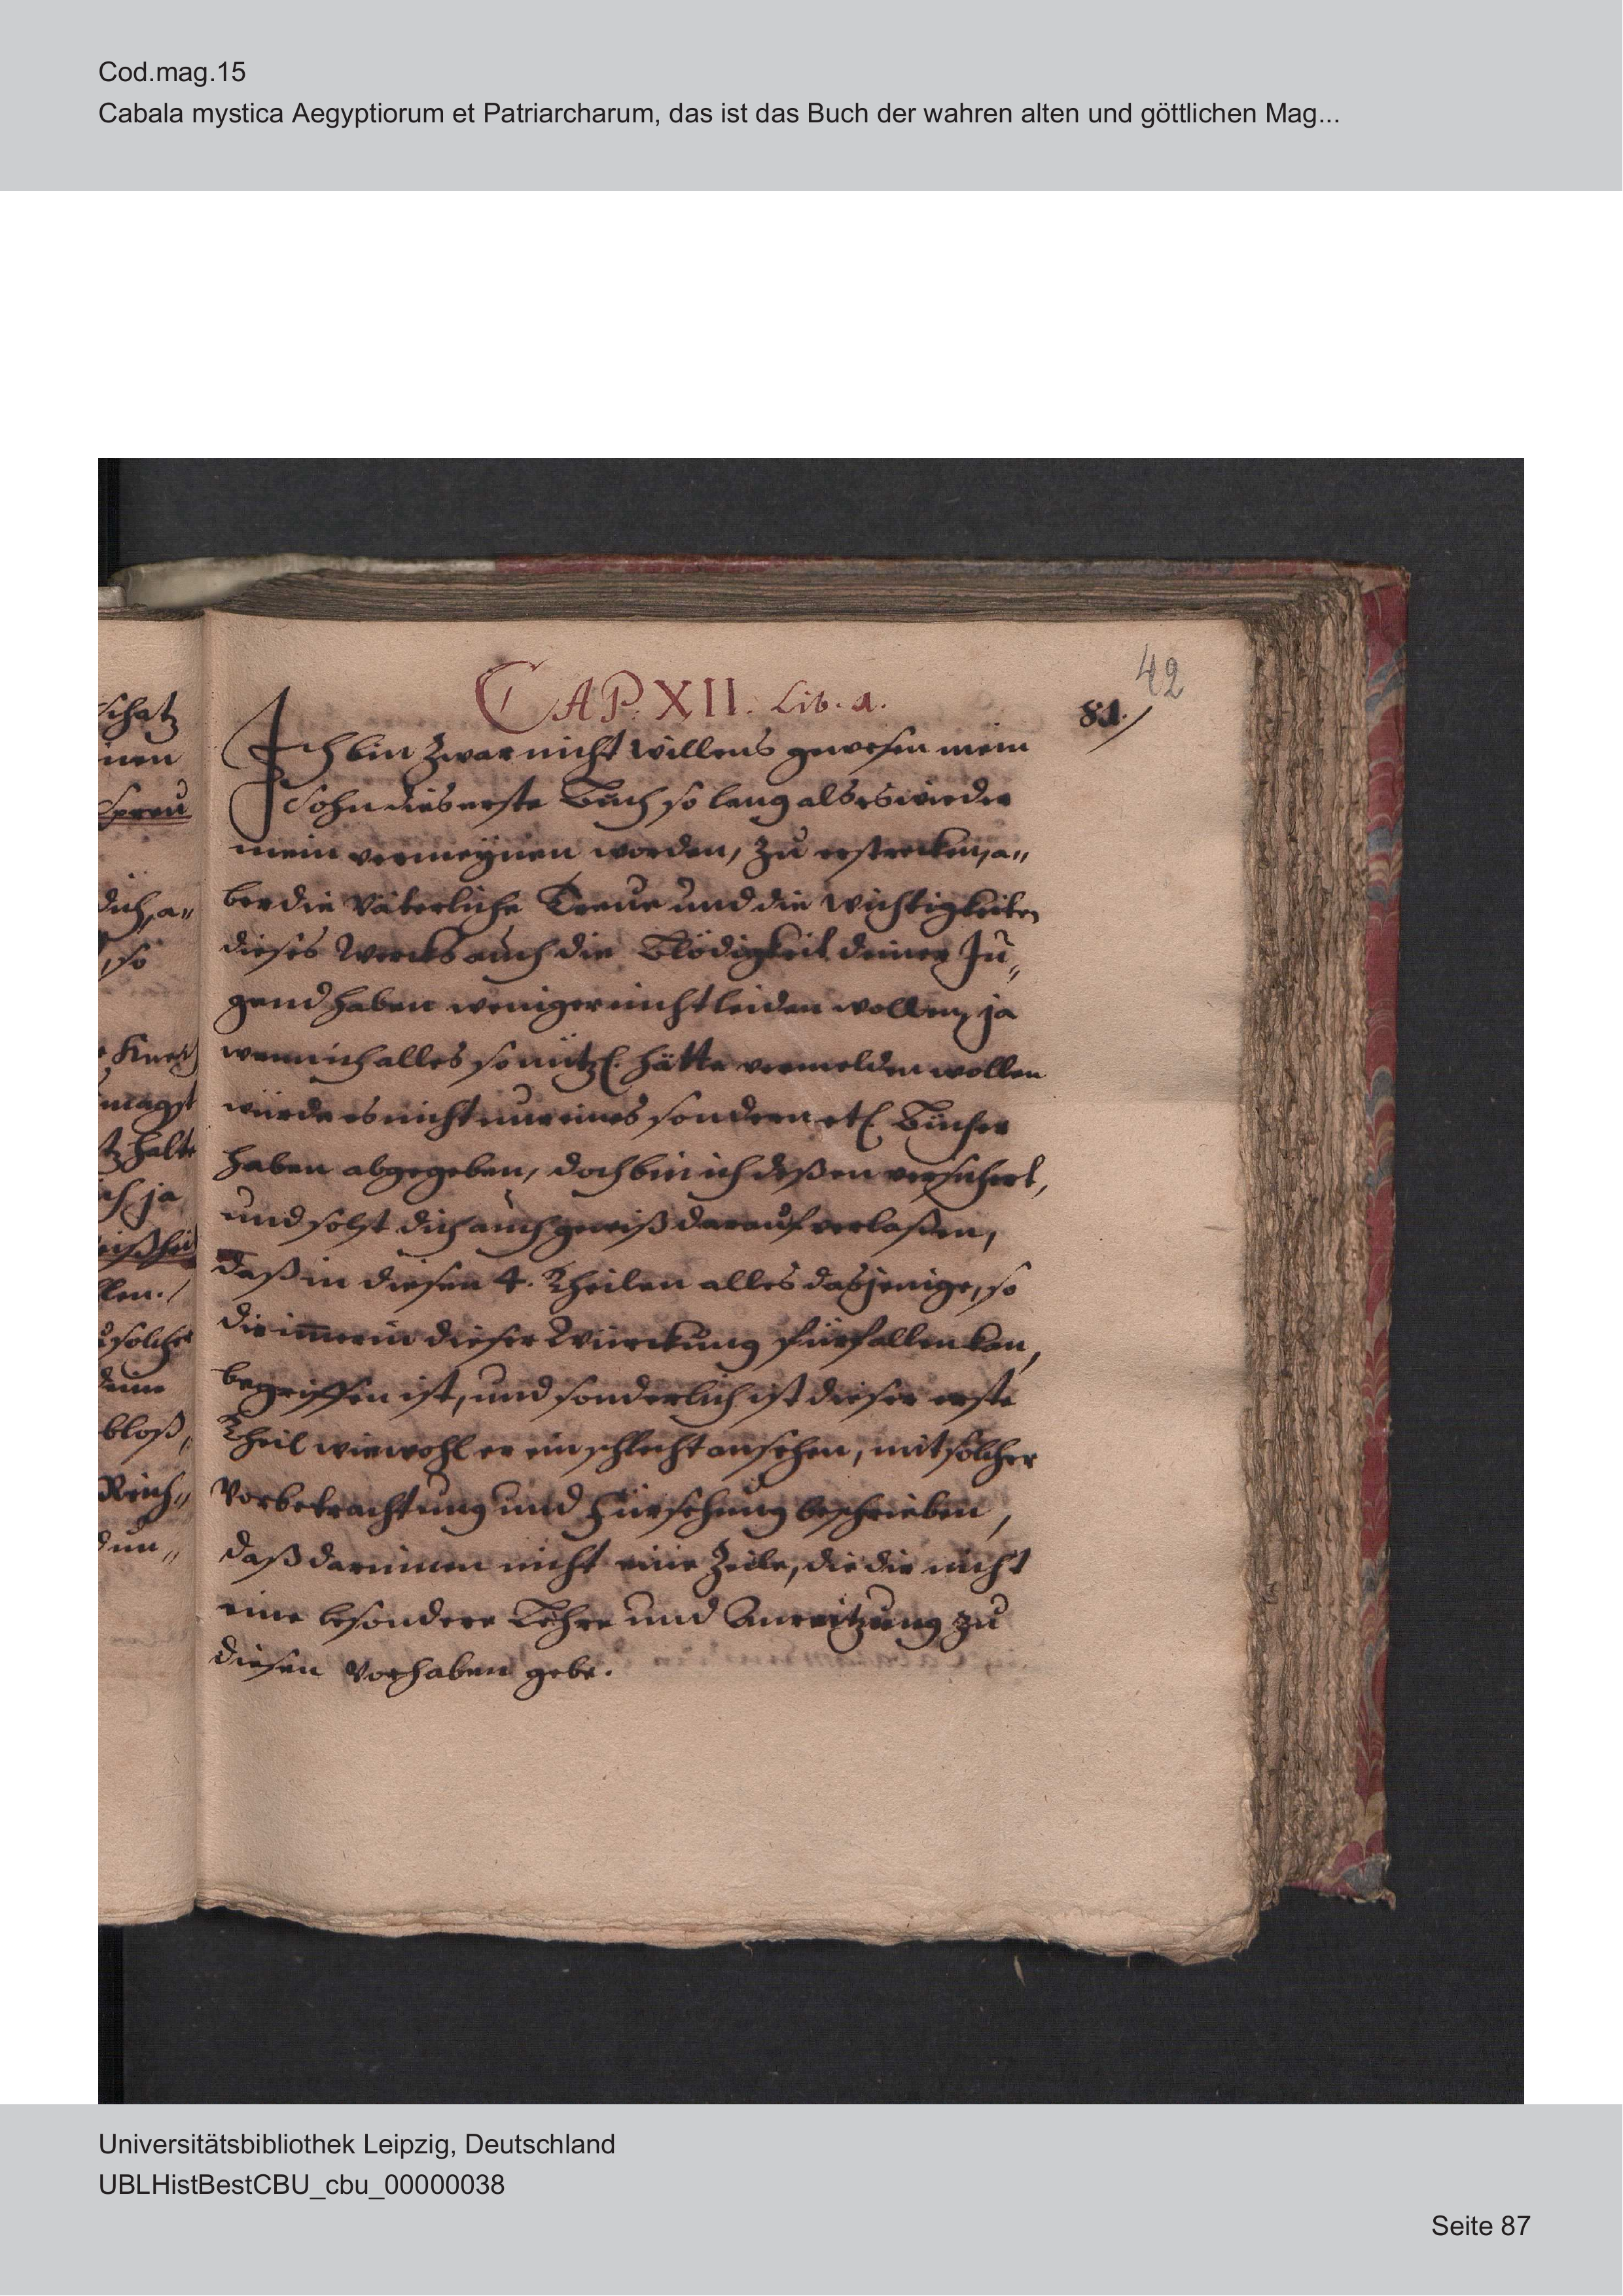 Cod.mag.15
Cabala mystica Aegyptiorum et Patriarcharum, das ist das Buch der wahren alten und göttlichen Mag...
42
CAP. XII. Lib. 1.
81.
Ich bin zwar nicht willens gewesen mein
Sohn dies erste Buch so lang als es wieder
mein vermeynen worden, zu erstrecken, a„
ber die Väterliche Treue und die Wichtigkeiten
dieses Wercks auch die Blödigkeit deiner Ju„
gend haben weniger nicht leiden wollen, ja
wenn ich alles so nützl. hätte vermelden wollen
würde es nicht nur eines sondern etl. Bücher
haben abgegeben, doch bin ich deßen versichert,
und solst dich auch gewiß darauf verlaßen,
daß in diesen 4. Theilen alles dasjenige, so
dir immer in dieser Würckung fürfallen kan,
begriffen ist, und sonderlich ist dieser erste
Theil wiewohl er ein schlecht ansehen, mit solcher
Vorbetrachtung und Fürsehung beschrieben,
daß darinnen nicht eine Zeile, die dir nicht
eine besondere Lehre und Anreitzung zu
diesen Vorhaben gebe.
schatz
nen
Spreu
dich, a„
so
magst
halte
ja
solches
deine
bloß,
Reich„
Universitätsbibliothek Leipzig, Deutschland
UBLHistBestCBU_cbu_00000038
Seite 87